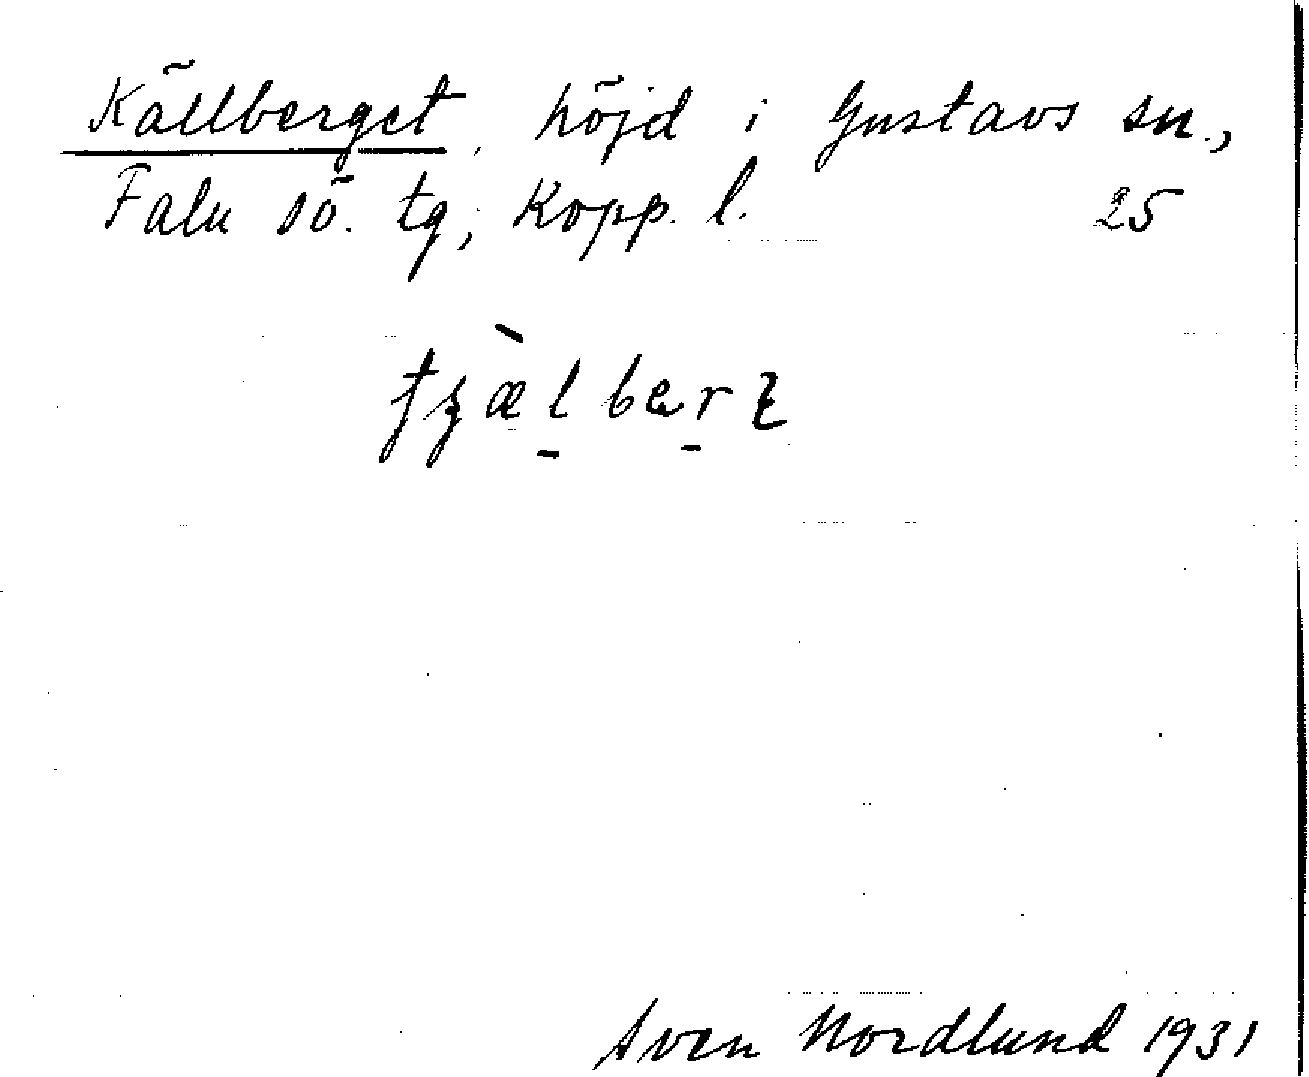 Källberget, höjd i Gustavs sn.,
Falu sö. tg, Kopp. l. 25
Sven Nordlund 1931